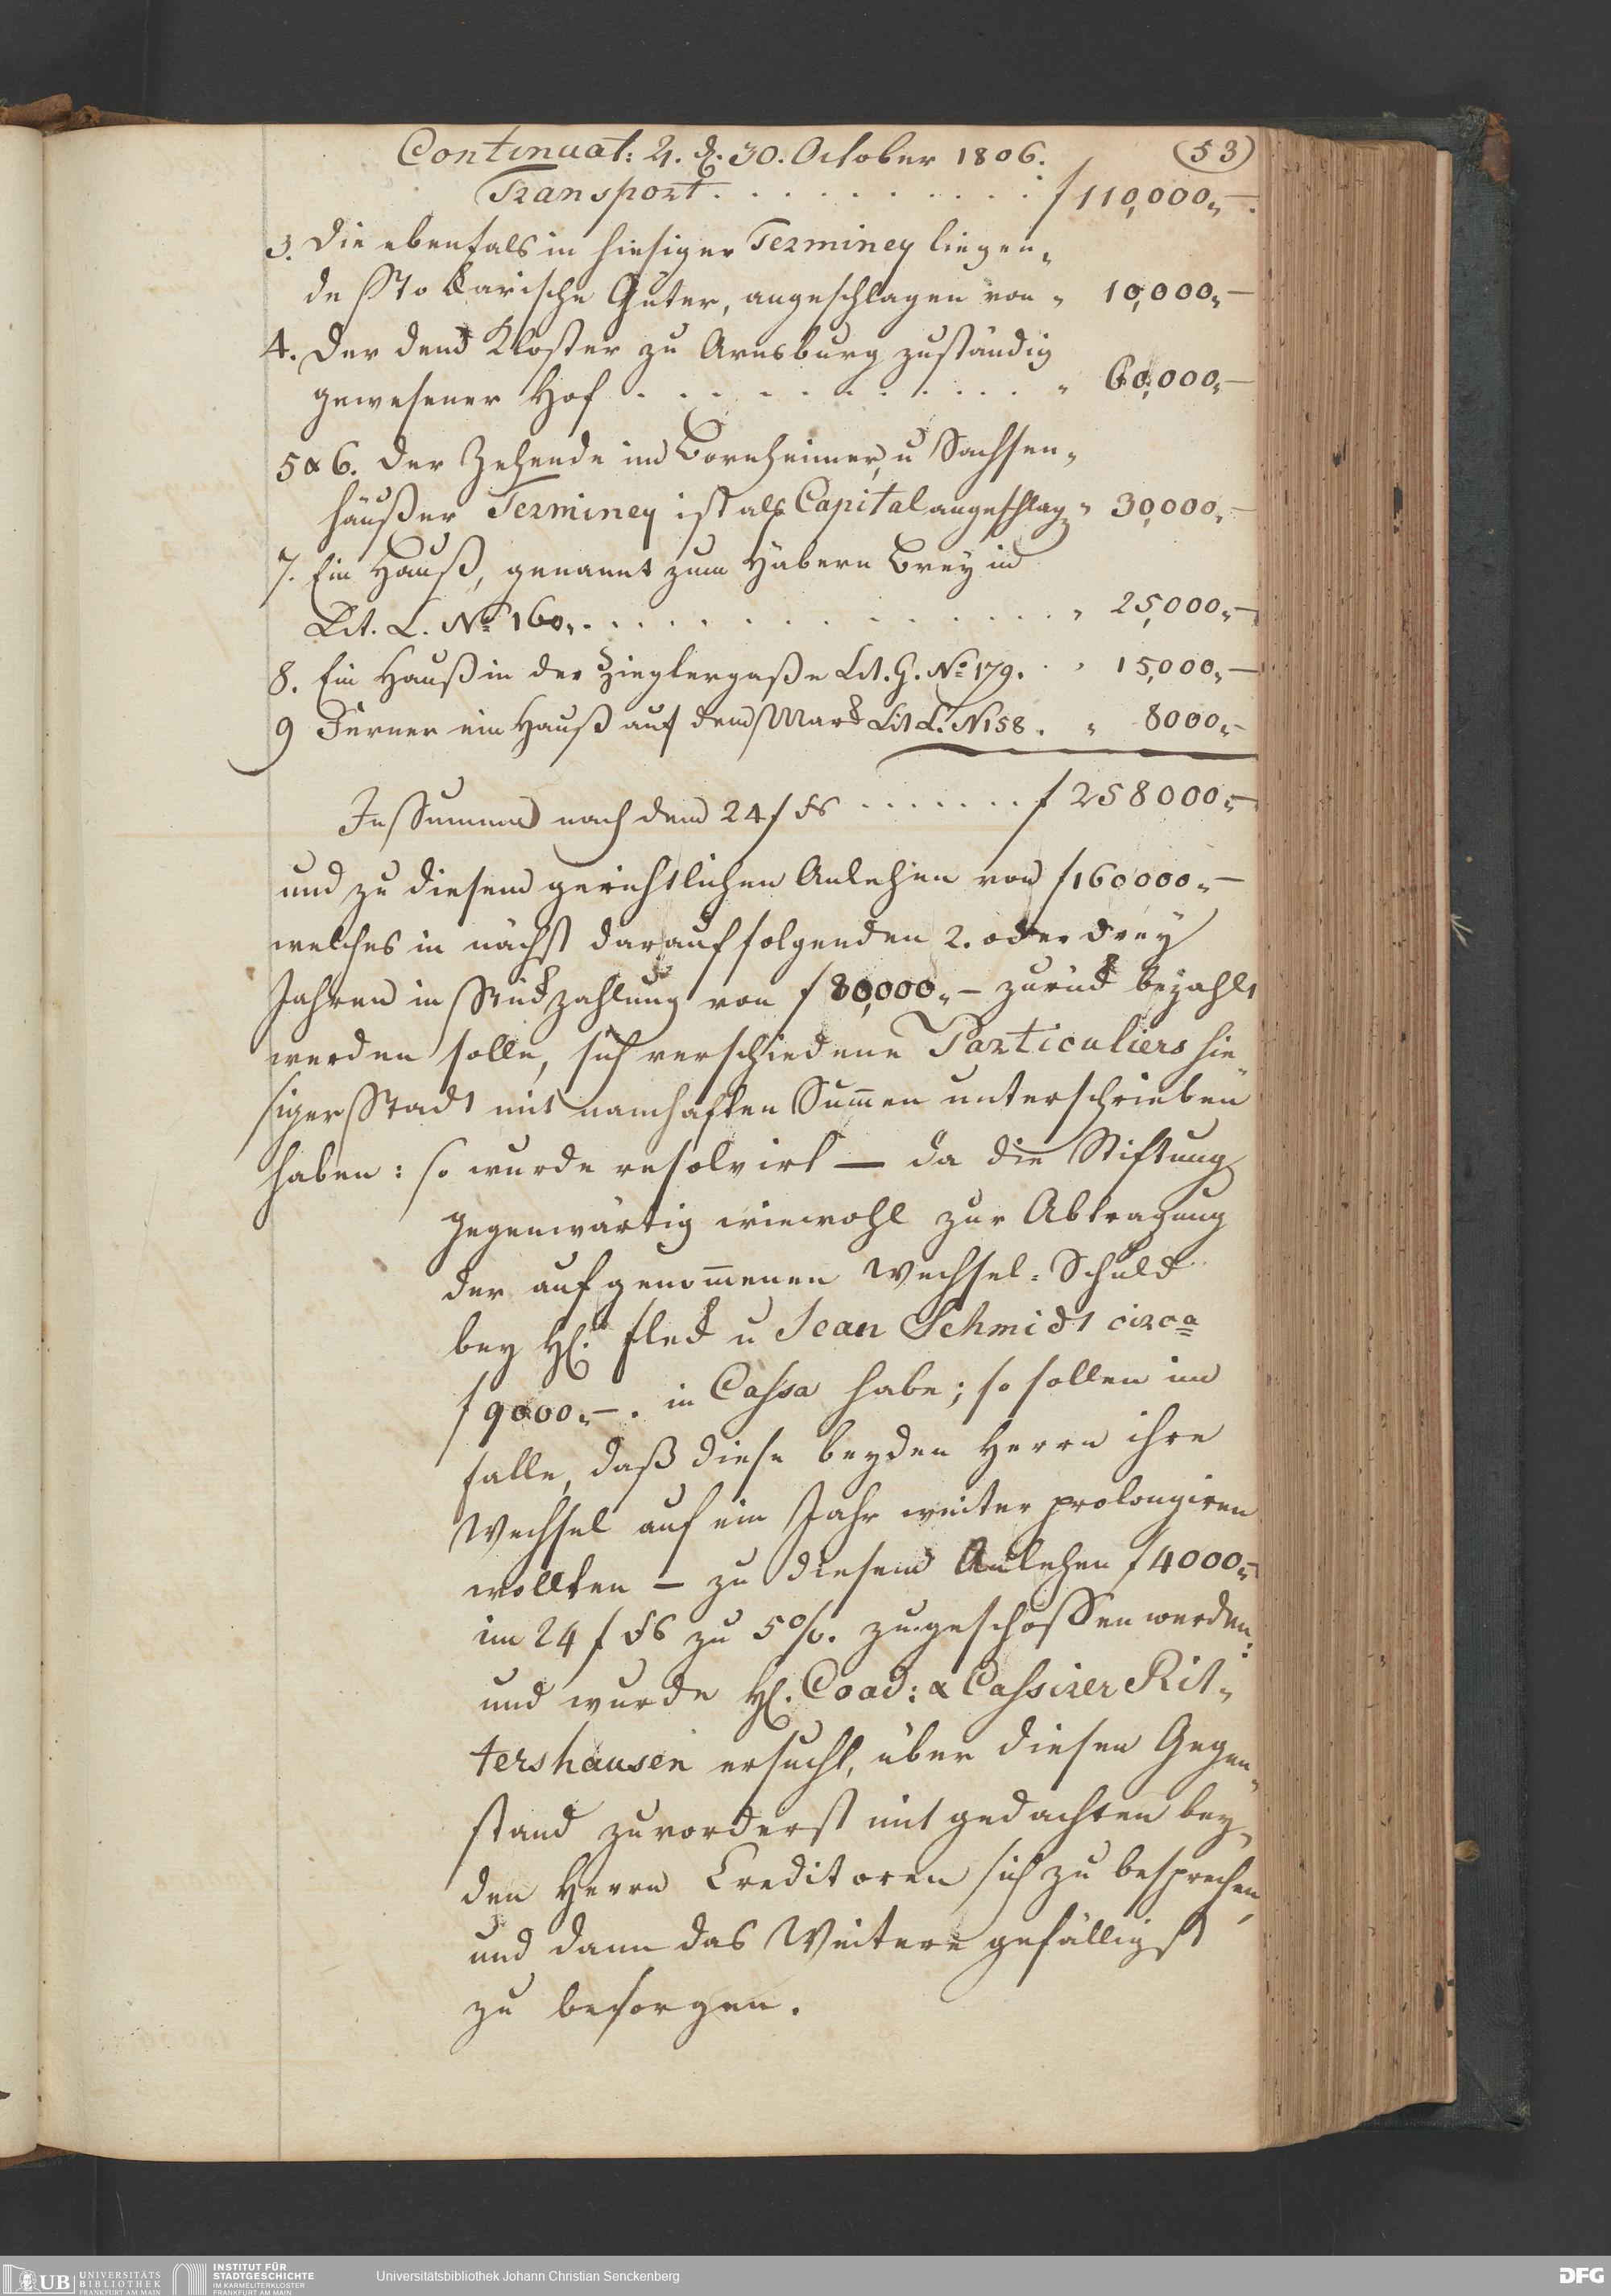 Continuat: 2. d. 30. October 1806. (53)
Transport . . . . . . . . . f 110,000,, —.
3. Die ebenfals in hiesiger Terminey liegen„
de Stockarische Güter, angeschlagen von „ 10,000,, —
4. Der dem Kloster zu Arnsburg zuständig
gewesener Hof . . . . . . . . . . „ 60,000,, —
5 & 6. Der Zehende im Bornheimer, u Sachsen„
häußer Terminey ist als Capital angeschlag „ 30,000,, —
7. Ein Hauß, genannt zum Häbern Brey in
Lit. L. No 160,, . . . . . . . . . . „ 25,000,, —
8. Ein Hauß in der Zieglergaße Lit. G. No 179. . „ 15,000,, —
9 Ferner ein Hauß auf dem Mark Lit L. N 158 . „ 8000,, —
In Summa nach dem 24 f fs . . . . . . . f 258000,, —
und zu diesem gerichtlichen Anlehen von f 160000,, —
welches in nächst darauf folgenden 2. oder drey
Jahren in Rückzahlung von f 80,000,, — zurück bezahlt
werden solle, sich verschiedene Particuliers hie„
siger Stadt mit namhaften Sum̄en unterschrieben
haben: so wurde resolvirt — da die Stiftung
gegenwärtig wiewohl zur Abtragung
der aufgenom̄enen Wechsel-Schuld
bey H. Fleck u Jean Schmidt circa
f 9000,, —. in Cassa habe; so sollen im
Falle, daß diese beyden Herrn ihre
Wechsel auf ein Jahr weiter prolongiren
wollten — zu diesem Anlehen f 4000,, —
im 24 f fs zu 5 %. zugeschossen werden:
und wurde H. Coad: & Cassirer Rit„
tershausen ersucht, über diesen Gegen„
stand zuvorderst mit gedachten bey„
den Herrn Creditoren sich zu besprechen,
und dann das Weitere gefälligst
zu besorgen.
UB UNIVERSITÄTS BIBLIOTHEK FRANKFURT AM MAIN
INSTITUT FÜR STADTGESCHICHTE IM KARMELITERKLOSTER FRANKFURT AM MAIN
Universitätsbibliothek Johann Christian Senckenberg
DFG